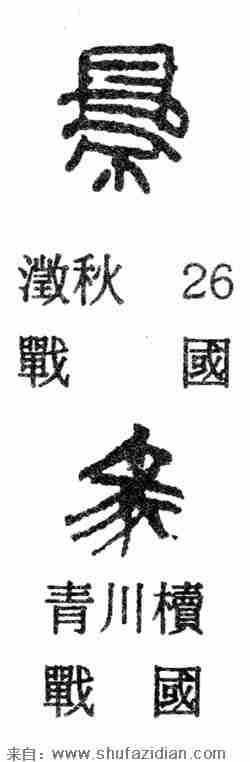 澂秋 26
戰國
青川櫝
戰國
来自：www.shufazidian.com